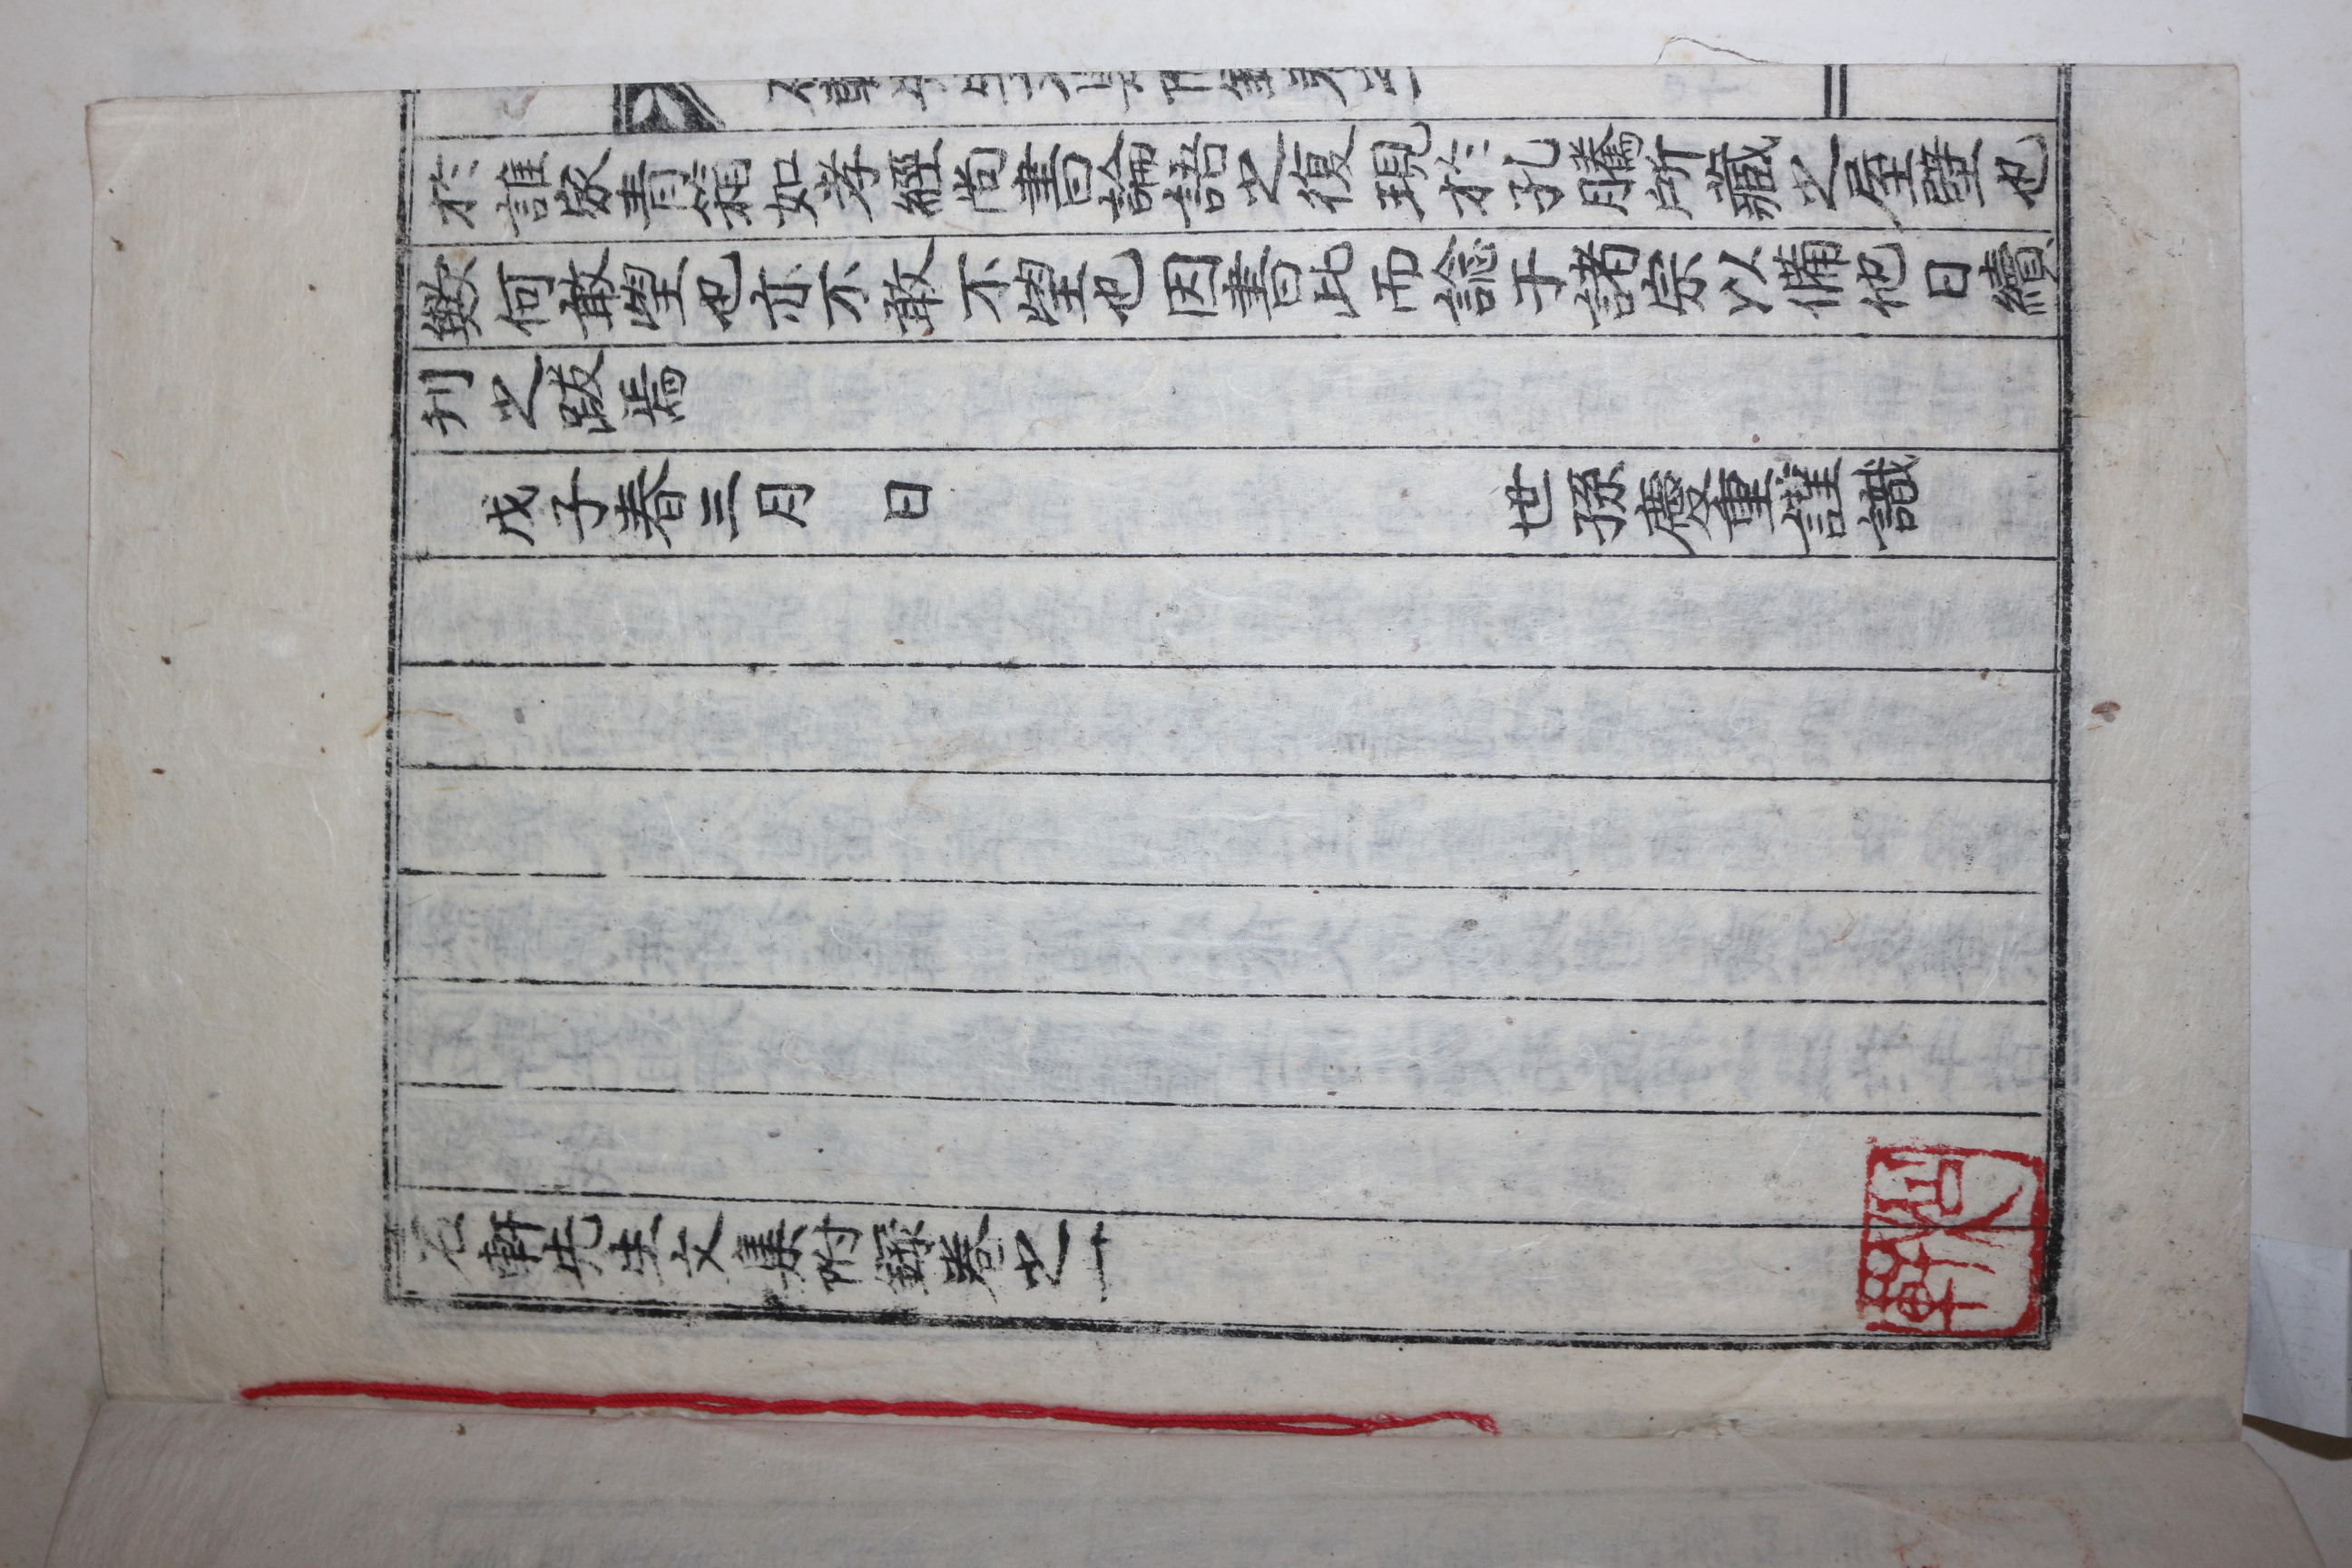 於誰家靑箱如孝經尙書論語之復現於孔騰所藏之屋壁也
歟何敢望也亦不敢不望也因書此而諗于諸宗以備他日續
刊之跋焉
戊子春三月 日 世孫慶重謹識
軒先生文集附錄卷之